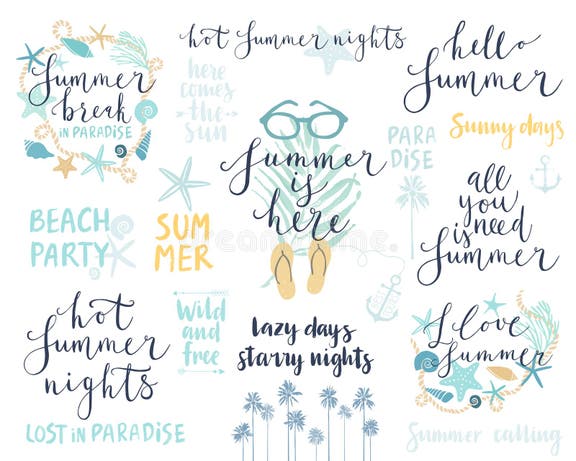 Summer
break
in PARADISE
hot Summer nights
here
comes
-the-
SUN
hello
Summer
Sunny days
PARA
DISE
Summer
is
here
all
you
is need
Summer
BEACH
PARTY
SUM
MER
hot
Summer
nights
Wild
and
free
lazy days
starry nights
I love
Summer
LOST in PARADiSE
Summer calling
dreamstime